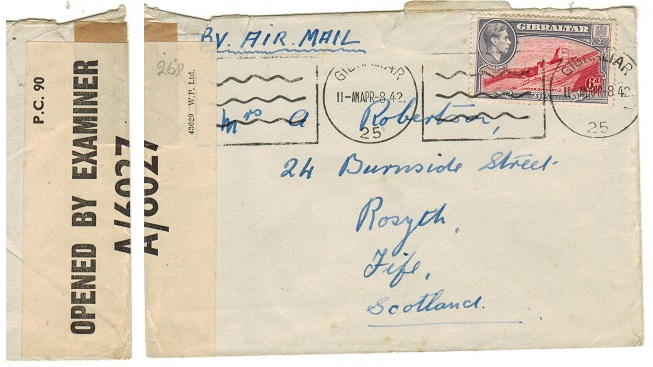 P.C. 90
OPENED BY EXAMINER
A/6027
A/6027
268
43029 W.P. Ltd.
BY. AIR. MAIL
GIBRALTAR
6d
GIBRALTAR
11-AM APR-8.42.
25
GIBRALTAR
11-AM APR-8 42.
25
Mrs A Robertson,
24 Burnside Street
Rosyth,
Fife,
Scotland.